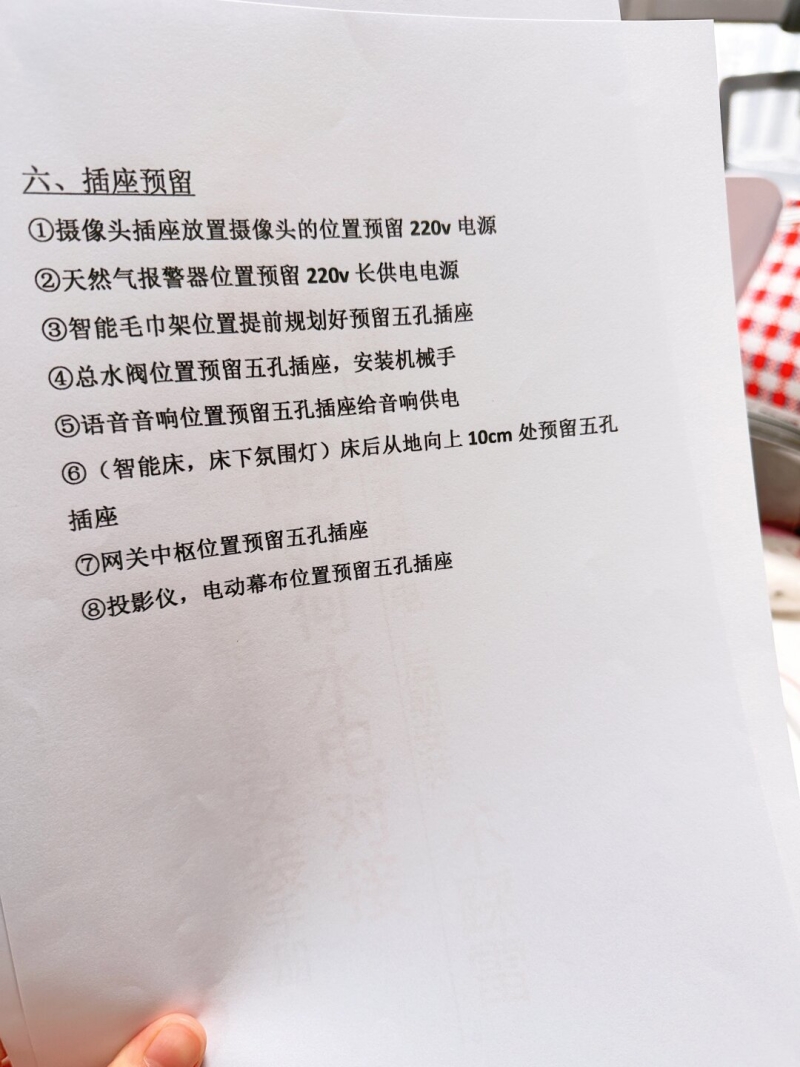 六、插座预留
①摄像头插座放置摄像头的位置预留 220v 电源
②天然气报警器位置预留 220v 长供电电源
③智能毛巾架位置提前规划好预留五孔插座
④总水阀位置预留五孔插座，安装机械手
⑤语音音响位置预留五孔插座给音响供电
⑥（智能床，床下氛围灯）床后从地向上 10cm 处预留五孔
插座
⑦网关中枢位置预留五孔插座
⑧投影仪，电动幕布位置预留五孔插座